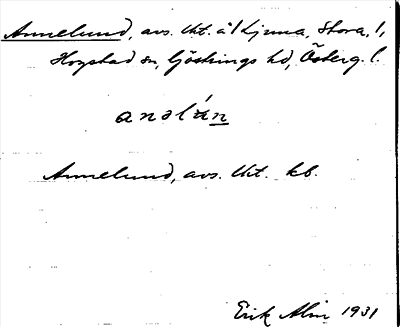 Annelund, avs. lht. å Ljuna, Stora, 1,
Hogstad sn, Göstrings hd, Österg. l.
anəlún
Annelund, avs. lht. kb.
Erik Alin 1931